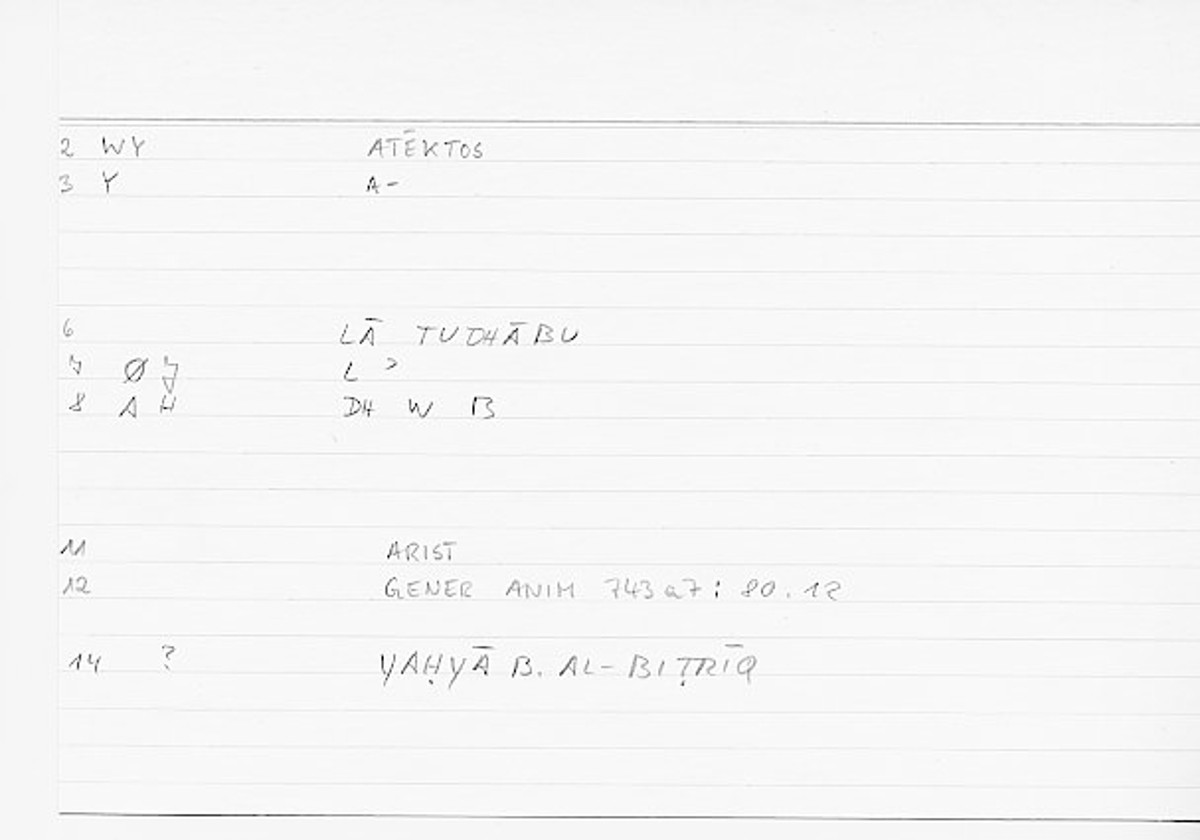 2 WY ATĒKTOS
3 Y A-
6 LĀ TUDHĀBU
7 Ø J L ʾ
8 A H DH W B
11 ARIST
12 GENER ANIM 743a7: 80.12
14 ? YAḤYĀ B. AL-BIṬRĪQ